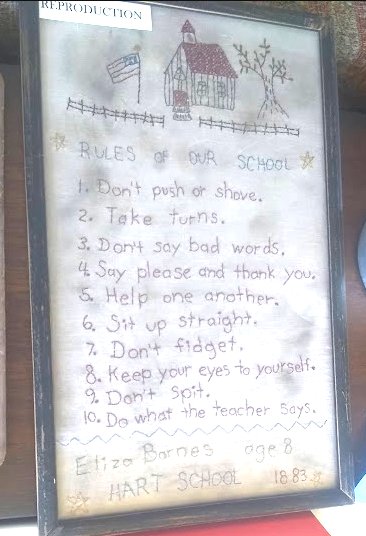 REPRODUCTION
RULES OF OUR SCHOOL
1. Don't push or shove.
2. Take turns.
3. Don't say bad words.
4. Say please and thank you.
5. Help one another.
6. Sit up straight.
7. Don't fidget.
8. Keep your eyes to yourself.
9. Don't spit.
10. Do what the teacher says.
Eliza Barnes age 8
HART SCHOOL 1883